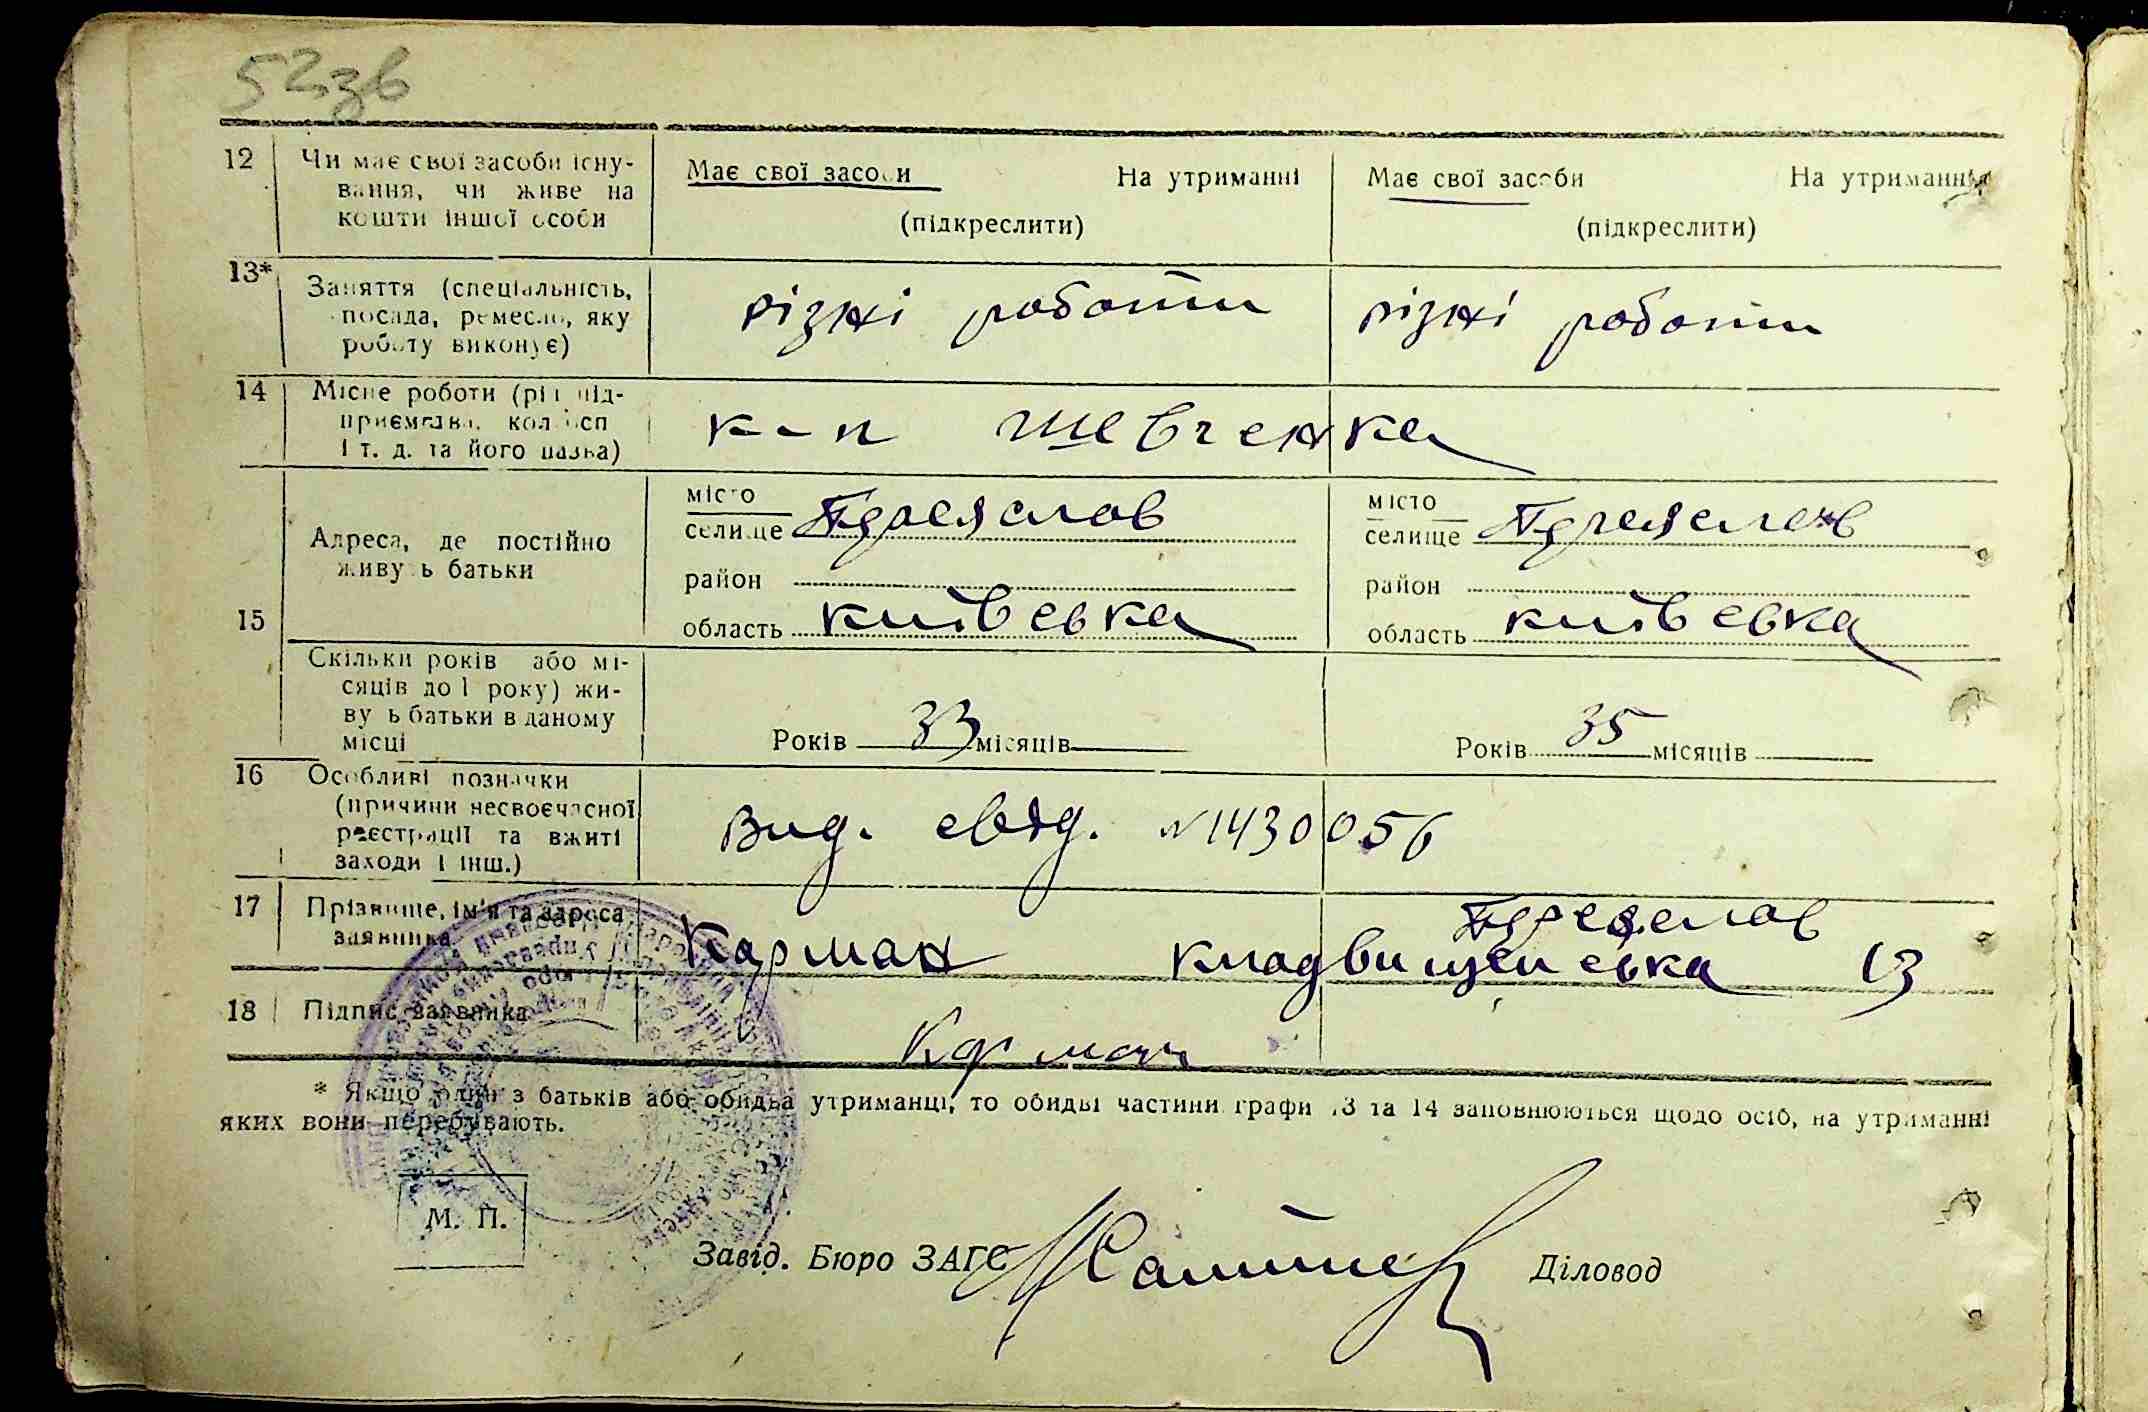 52зв
12 Чи має свої засоби існу- Має свої засоби На утриманні Має свої засоби На утриманні
вання, чи живе на
кошти іншої особи (підкреслити) (підкреслити)
13* Заняття (спеціальність, різні роботи різні роботи
посада, ремесло, яку
роботу виконує)
14 Місце роботи (рід під- к-п Шевченка
приємства, колгосп
і т. д. та його назва)
місто Переяслав місто Переяслав
селище селище
Адреса, де постійно
живуть батьки район район
15 область київська область київська
Скільки років або мі-
сяців до 1 року) жи-
вуть батьки в даному
місці Років 33 місяців Років 35 місяців
16 Особливі позначки
(причини несвоєчасної Вид. свід. №1430056
реєстрації та вжиті
заходи і інш.)
17 Прізвище, ім'я та адреса Переяслав
заявника Карман кладвищенська 13
18 Підпис заявника Карман
* Якщо один з батьків або обидва утриманці, то обидві частини графи 13 та 14 заповнюються щодо осіб, на утриманні
яких вони перебувають.
М. П.
Завід. Бюро ЗАГС Діловод